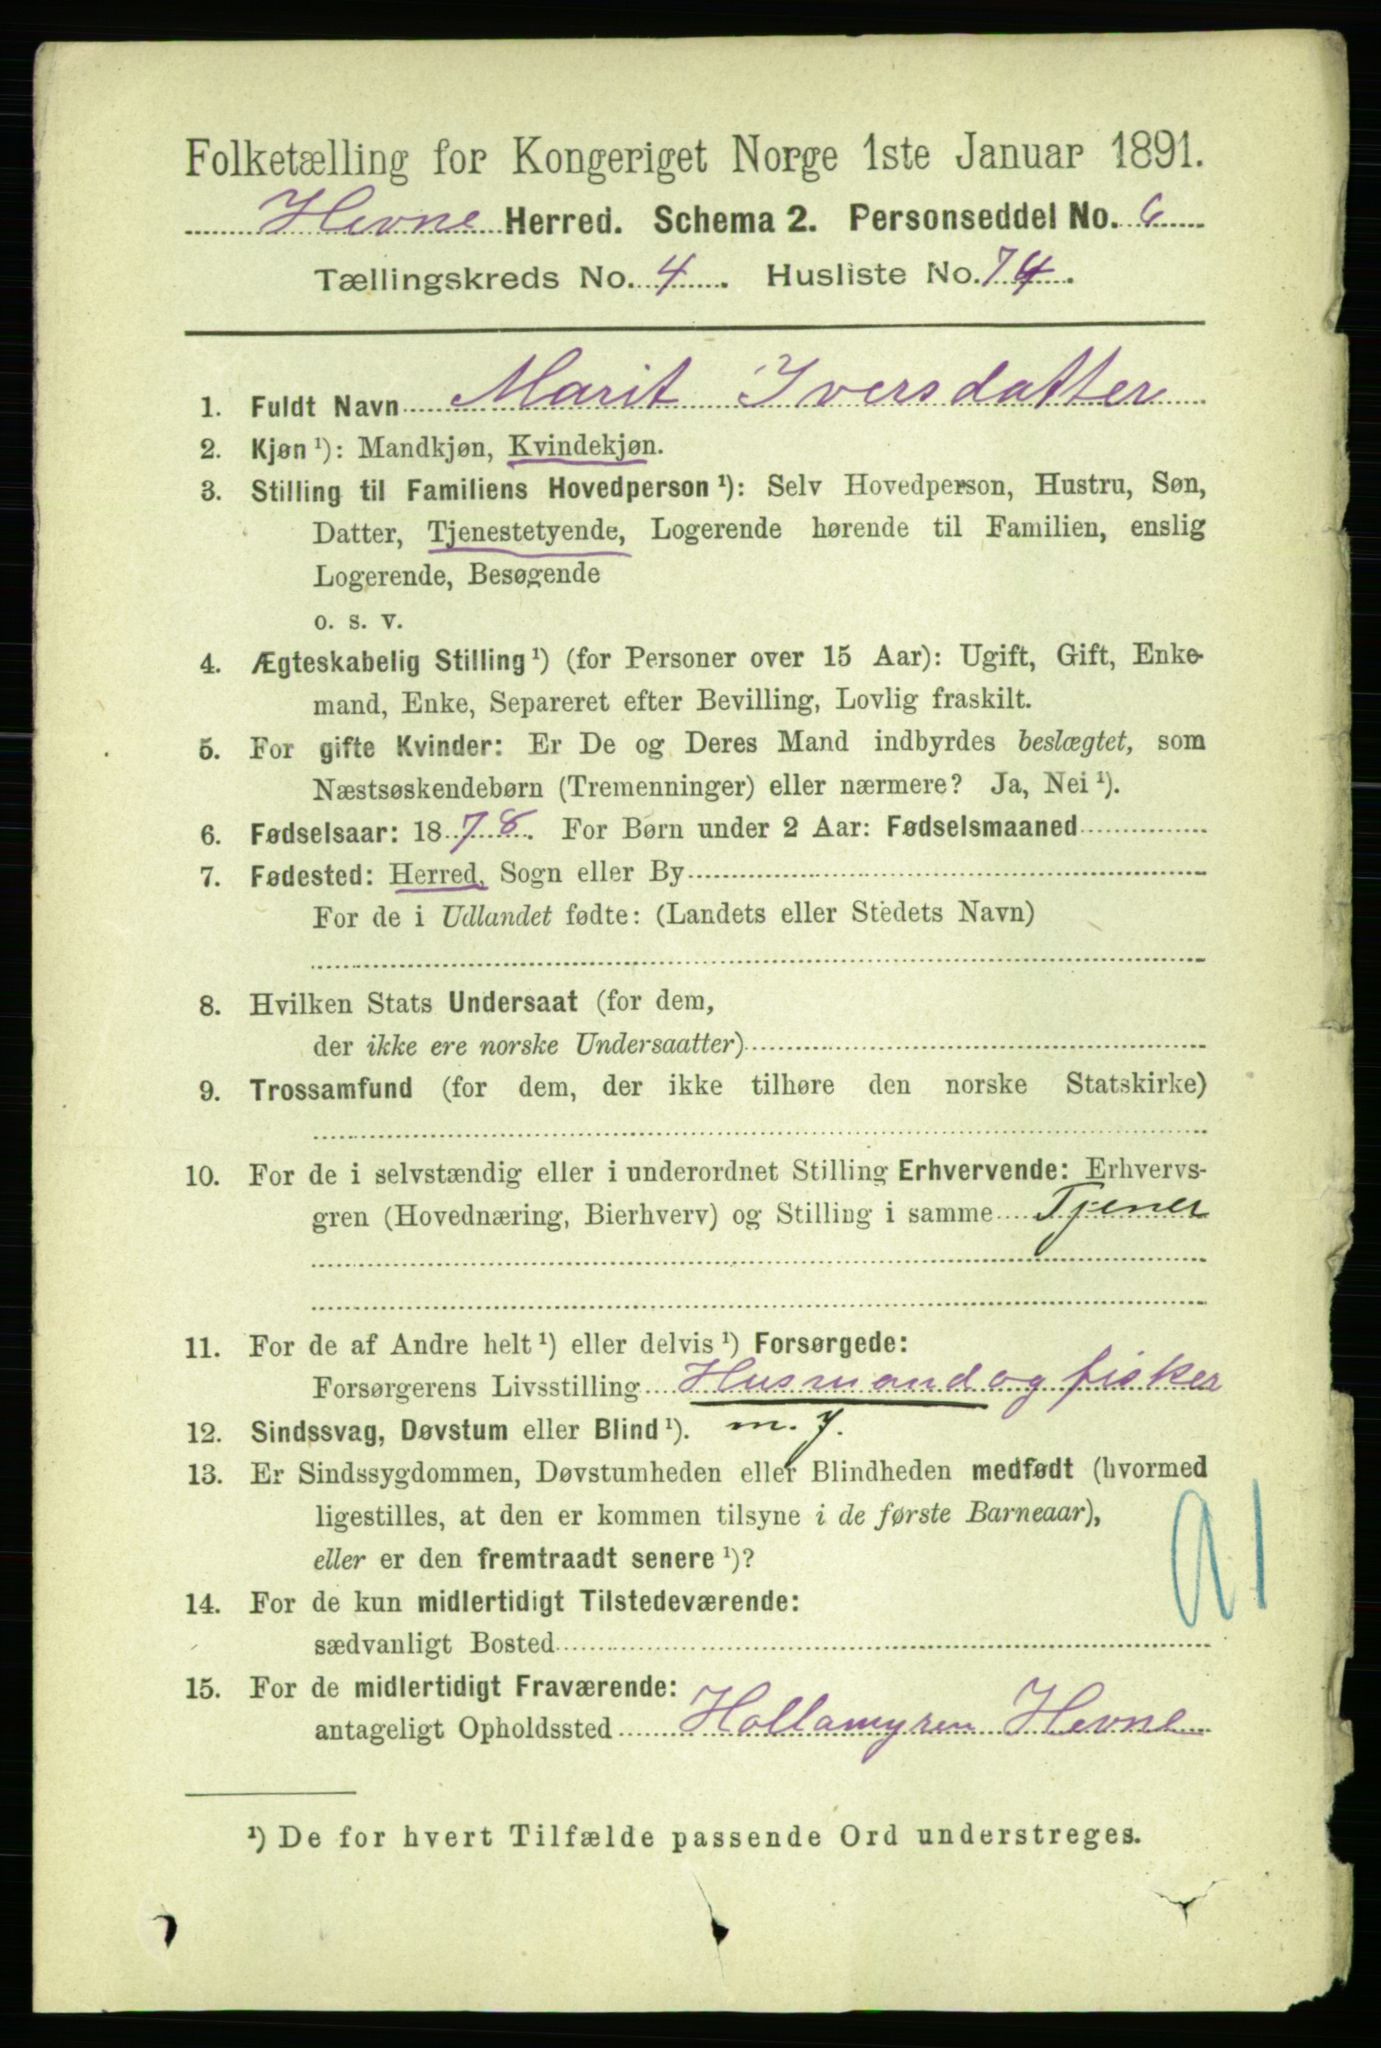 Folketælling for Kongeriget Norge 1ste Januar 1891.
Hevne Herred. Schema 2. Personseddel No. 6
Tællingskreds No. 4. Husliste No. 74.
1. Fuldt Navn Marit Iversdatter
2. Kjøn ¹): Mandkjøn, Kvindekjøn.
3. Stilling til Familiens Hovedperson ¹): Selv Hovedperson, Hustru, Søn,
Datter, Tjenestetyende, Logerende hørende til Familien, enslig
Logerende, Besøgende
o. s. v.
4. Ægteskabelig Stilling ¹) (for Personer over 15 Aar): Ugift, Gift, Enke-
mand, Enke, Separeret efter Bevilling, Lovlig fraskilt.
5. For gifte Kvinder: Er De og Deres Mand indbyrdes beslægtet, som
Næstsøskendebørn (Tremenninger) eller nærmere? Ja, Nei ¹).
6. Fødselsaar: 1878. For Børn under 2 Aar: Fødselsmaaned
7. Fødested: Herred, Sogn eller By
For de i Udlandet fødte: (Landets eller Stedets Navn)
8. Hvilken Stats Undersaat (for dem,
der ikke ere norske Undersaatter)
9. Trossamfund (for dem, der ikke tilhøre den norske Statskirke)
10. For de i selvstændig eller i underordnet Stilling Erhvervende: Erhvervs-
gren (Hovednæring, Bierhverv) og Stilling i samme Tjener
11. For de af Andre helt ¹) eller delvis ¹) Forsørgede:
Forsørgerens Livsstilling Husmand og fisker
12. Sindssvag, Døvstum eller Blind ¹). m. j.
13. Er Sindssygdommen, Døvstumheden eller Blindheden medfødt (hvormed
ligestilles, at den er kommen tilsyne i de første Barneaar),
eller er den fremtraadt senere ¹)?
14. For de kun midlertidigt Tilstedeværende:
sædvanligt Bosted
15. For de midlertidigt Fraværende:
antageligt Opholdssted Hollamyren Hevne
¹) De for hvert Tilfælde passende Ord understreges.
91